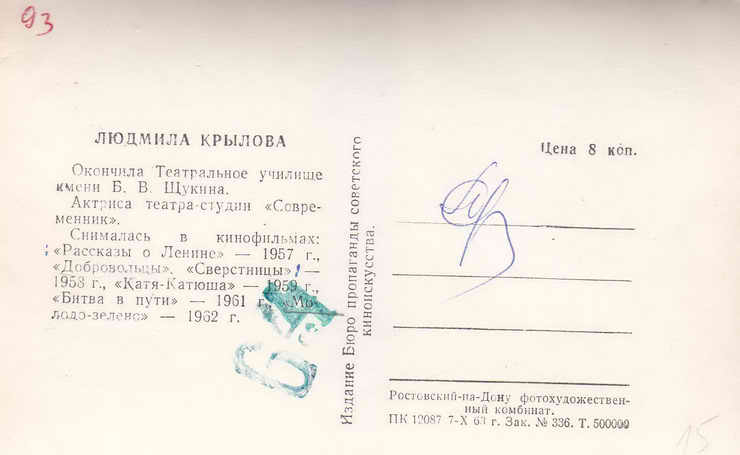 93
ЛЮДМИЛА КРЫЛОВА
Окончила Театральное училище
имени Б. В. Щукина.
Актриса театра-студии «Совре-
менник».
Снималась в кинофильмах:
«Рассказы о Ленине» — 1957 г.,
«Добровольцы», «Сверстницы» —
1958 г., «Катя-Катюша» — 1959 г.,
«Битва в пути» — 1961 г., «Мо-
лодо-зелено» — 1962 г.
Издание Бюро пропаганды советского
киноискусства.
Цена 8 коп.
Ростовский-на-Дону фотохудожествен-
ный комбинат.
ПК 12087 7-X 63 г. Зак. № 336. Т. 500000
15